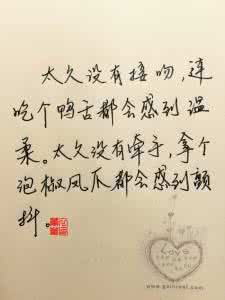 太久没有接吻，连
吃个鸭舌都会感到温
柔。太久没有牵手，拿个
泡椒凤爪都会感到颤
抖。
Love
www.gainreal.com